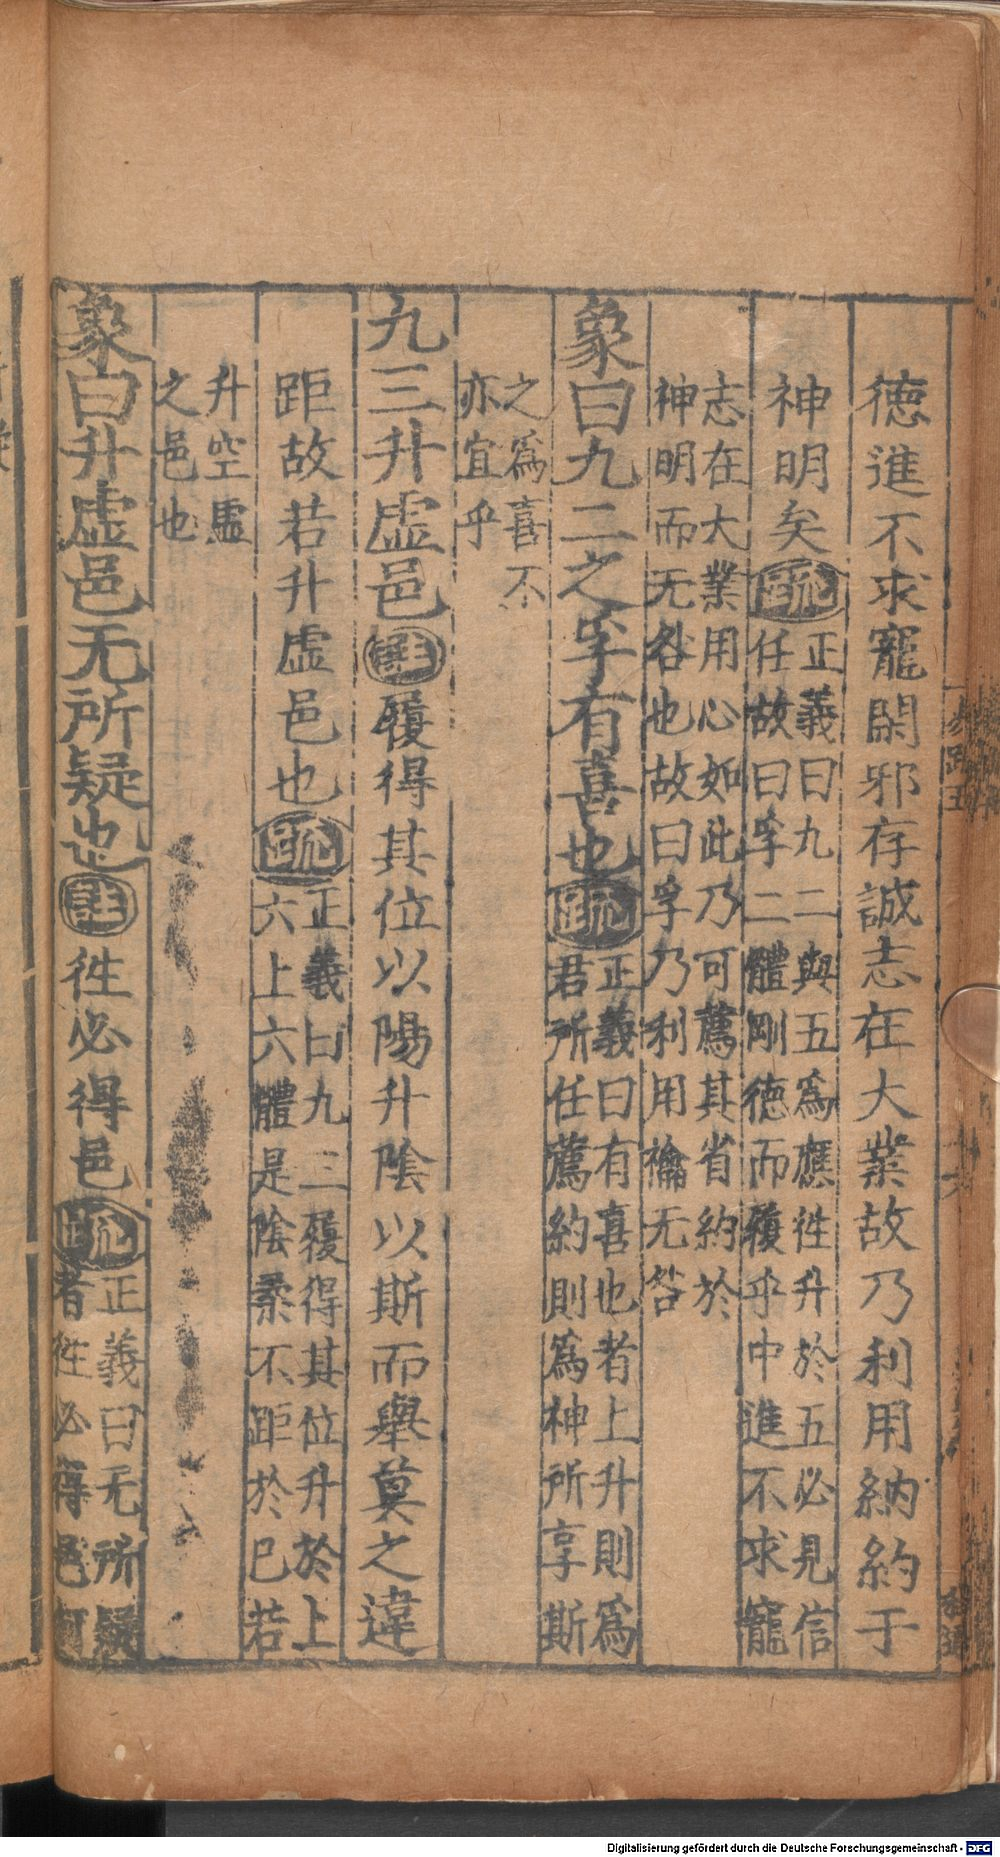 德進不求寵閑邪存誠志在大業故乃利用納約于
神明矣疏正義曰九二與五爲應徃升於五必見信
任故曰孚二體剛德而履乎中進不求寵
志在大業用心如此乃可薦其省約於
神明而无咎也故曰孚乃利用禴无咎
象曰九二之孚有喜也疏正義曰有喜也者上升則爲
君所任薦約則爲神所享斯
之爲喜不
亦宜乎
九三升虛邑註履得其位以陽升陰以斯而舉莫之違
距故若升虛邑也疏正義曰九三履得其位升於上
六上六體是陰柔不距於巳若
升空虛
之邑也
象曰升虛邑无所疑也註徃必得邑疏正義曰无所疑
者徃必得邑何
易疏五
Digitalisierung gefördert durch die Deutsche Forschungsgemeinschaft - DFG